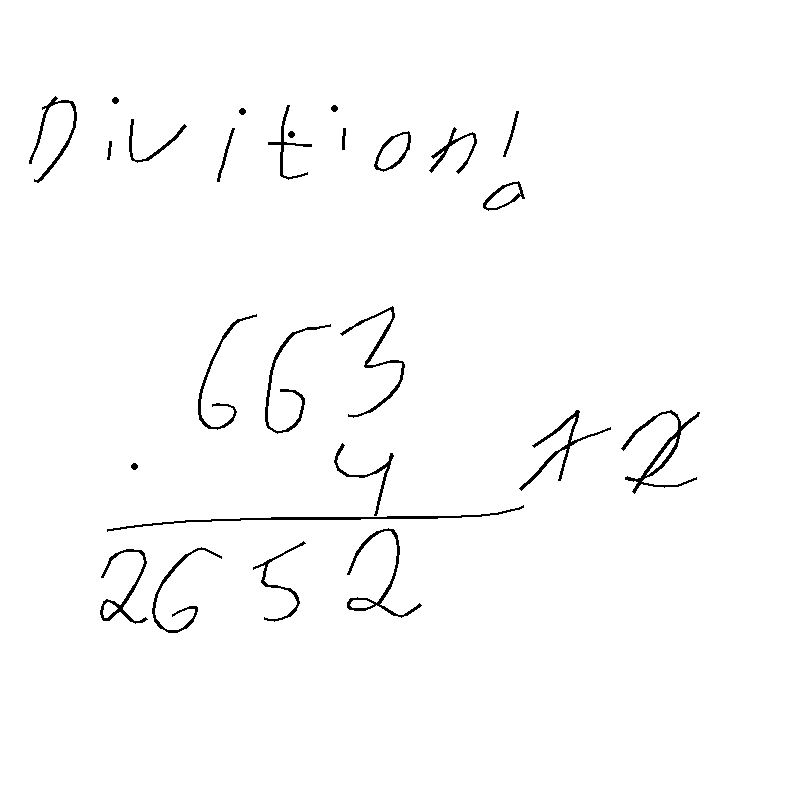 Divition!
663
· 4
2652